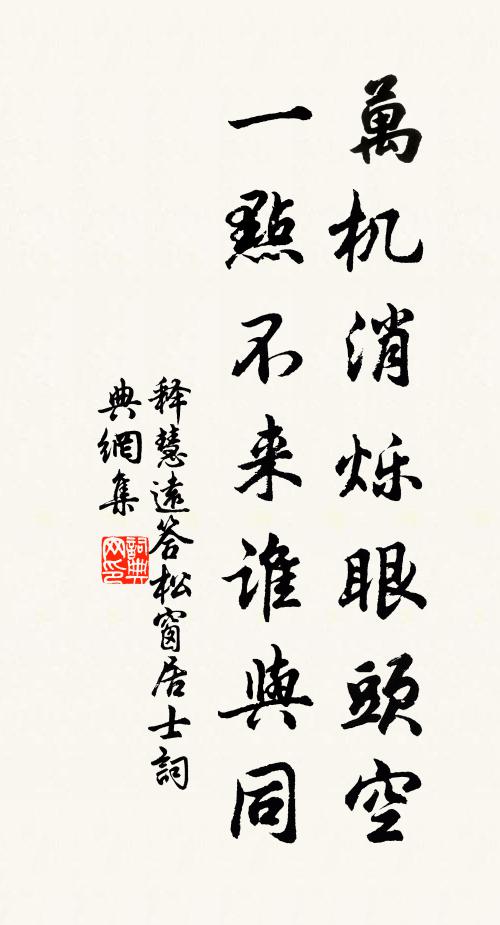 萬机消烁眼頭空
一點不来谁與同
释慧遠答松窗居士詞
典網集
詞典网印